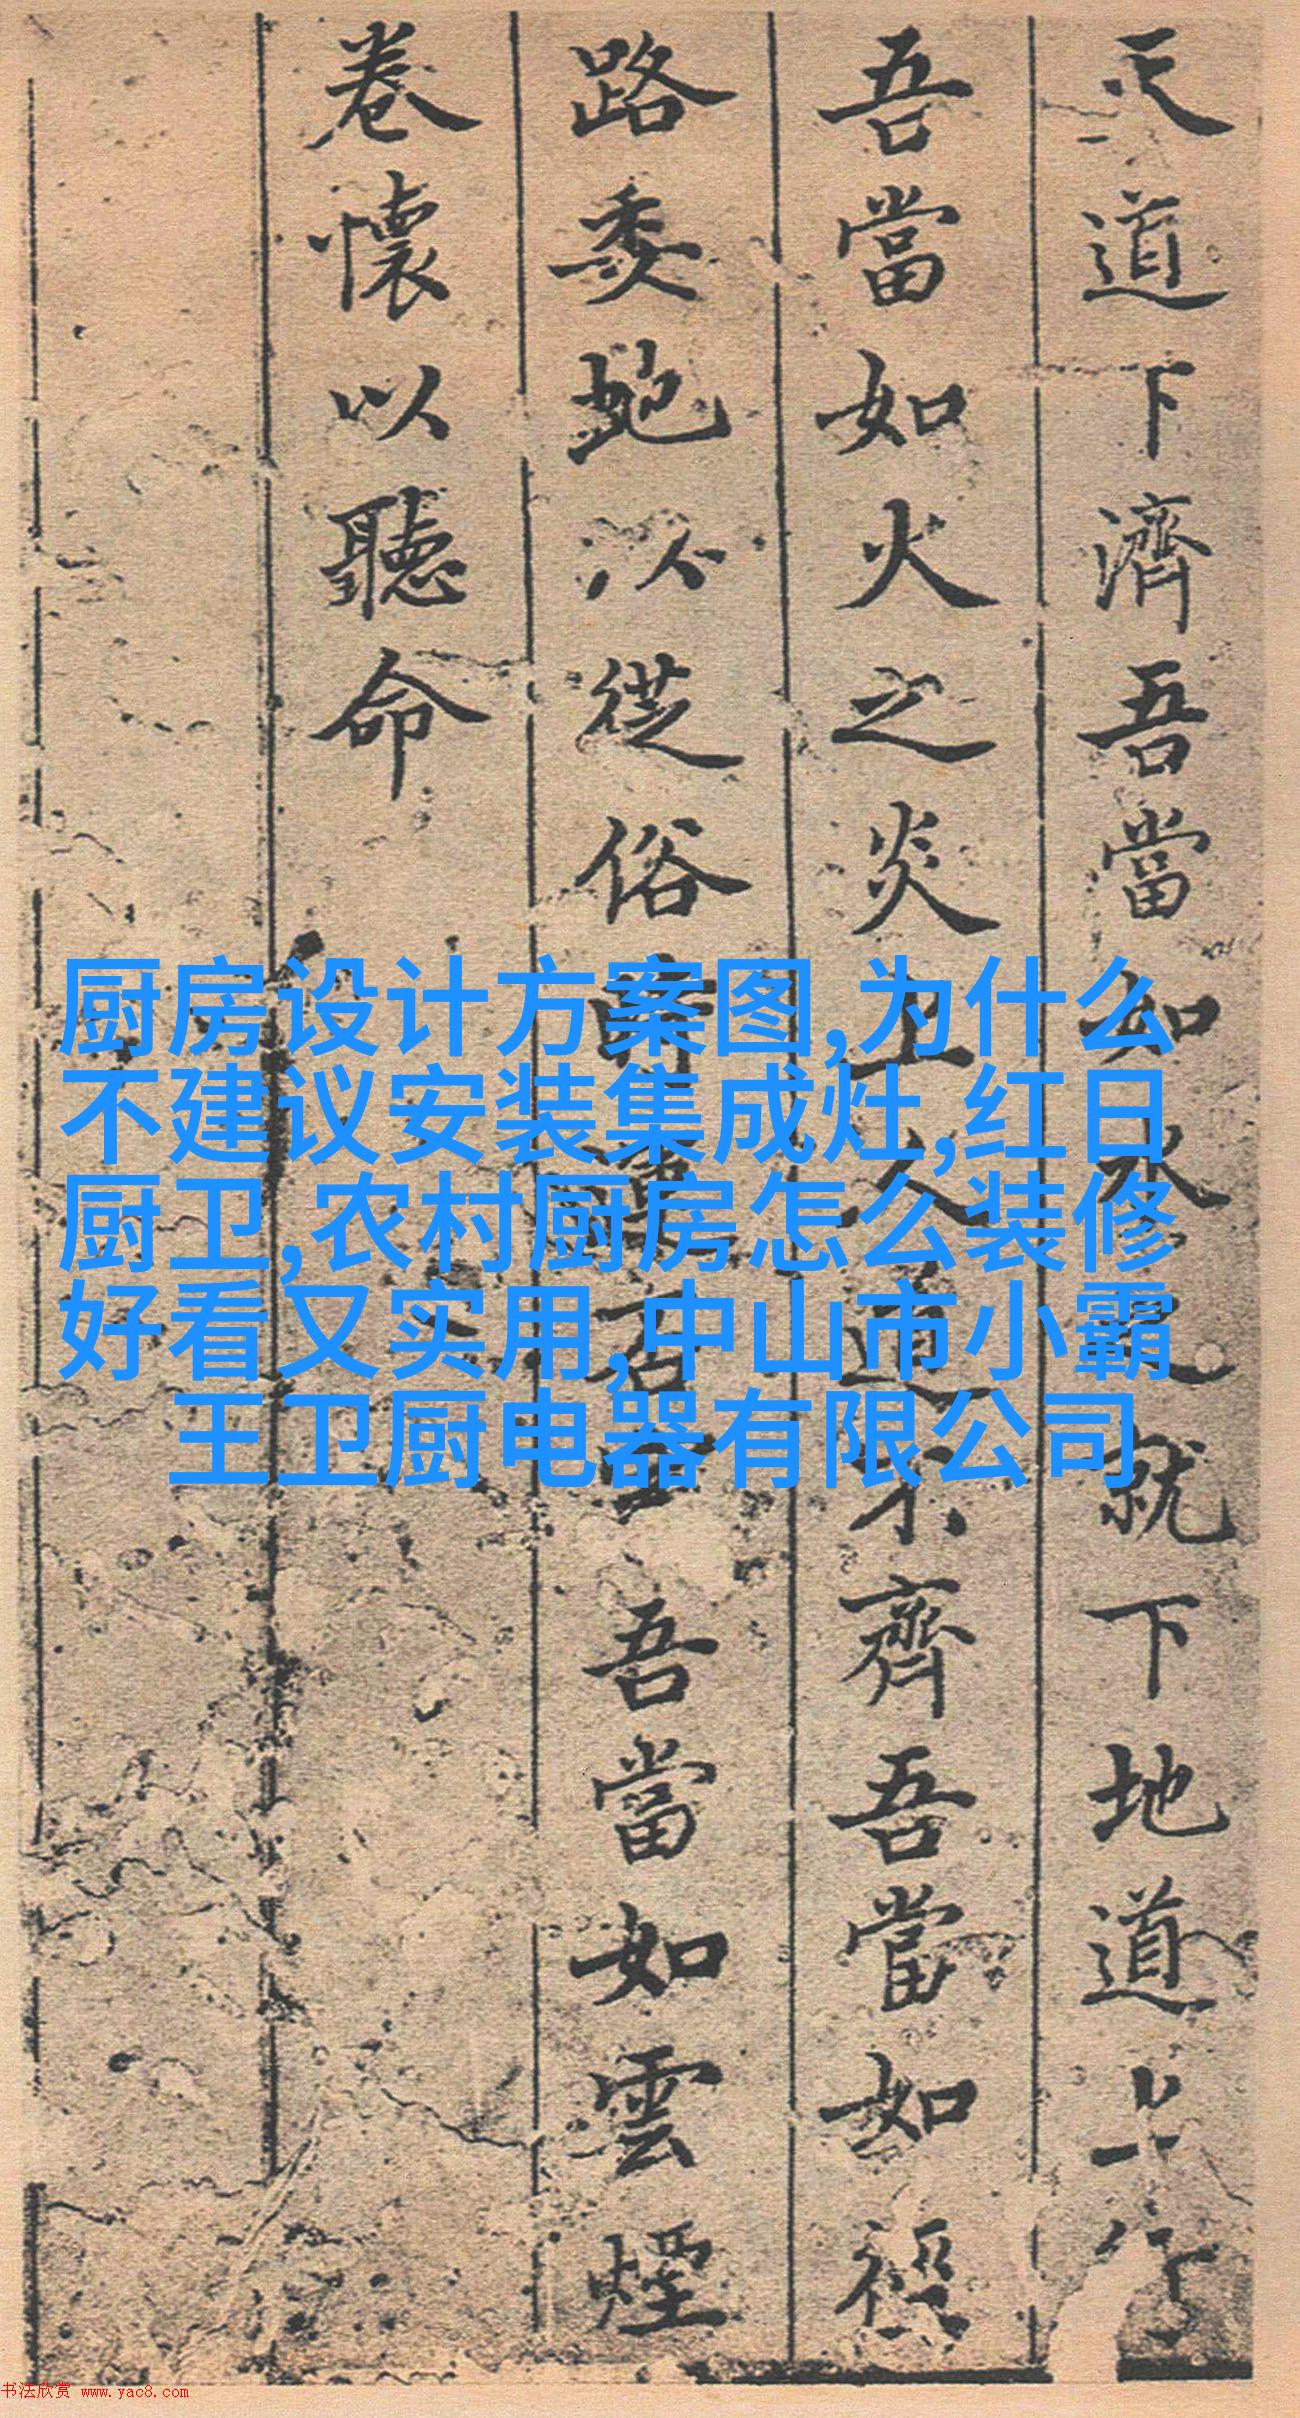 天道下濟吾當如水之就下地道上行
吾當如火之炎上人道不齊吾當如徑
路委虵以從俗吾當如雲煙
卷懷以聽命
厨房设计方案图,为什么
不建议安装集成灶,红日
厨卫,农村厨房怎么装修
好看又实用,中山市小霸
王卫厨电器有限公司
书法欣赏 www.yac8.com